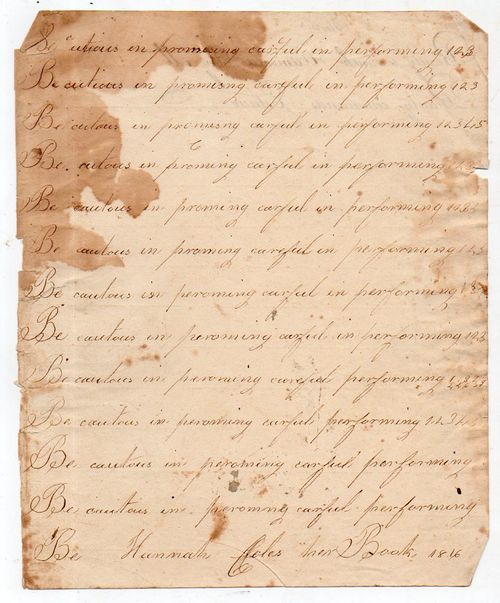 Be cautious in promising carful in performing 123
Be cautious in promisng careful in performing 123
Be cautous in promisng carful in performing 12345
Be cutous in proming carful in performing 123
Be cautous in proming carful in performing 123
Be cautous in proming careful in performing 123
Be cautous in peroming carful in performing 123
Be cautous in peroming carful in performing 123
Be cautous in peroming careful performing 12233
Be cautous in peroming carful performing 12345
Be cautous in peroming carful performing
Be cautous in peromng carful performing
Be Hannah Coles her Book 1816